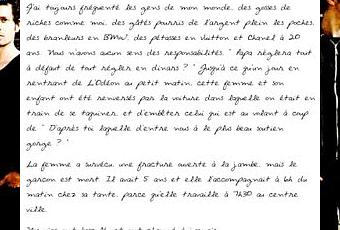 J'ai toujours fréquenté les gens de mon monde, des gosses de
riches comme moi, des gâtés pourris de l'argent plein les poches,
des branleurs en BMW, des pétasses en Vuitton et Chanel à 20
ans. Nous n'avons aucun sens des responsabilités. " Papa règlera tout
à défaut de tout régler en dinars ? " Jusqu'à ce qu'un jour en
rentrant de L'Odéon au petit matin, cette femme et son
enfant ont été renversés par la voiture dans laquelle on était en
train de se taquiner et d'embêter celui qui est au volant à coup
de " D'après toi laquelle d'entre nous a le plus beau soutien
gorge ? "
La femme a survécu, une fracture ouverte à la jambe, mais le
garçon est mort. Il avait 5 ans et elle l'accompagnait à 6h du
matin chez sa tante, parce qu'elle travaille à 7h30 au centre
ville.